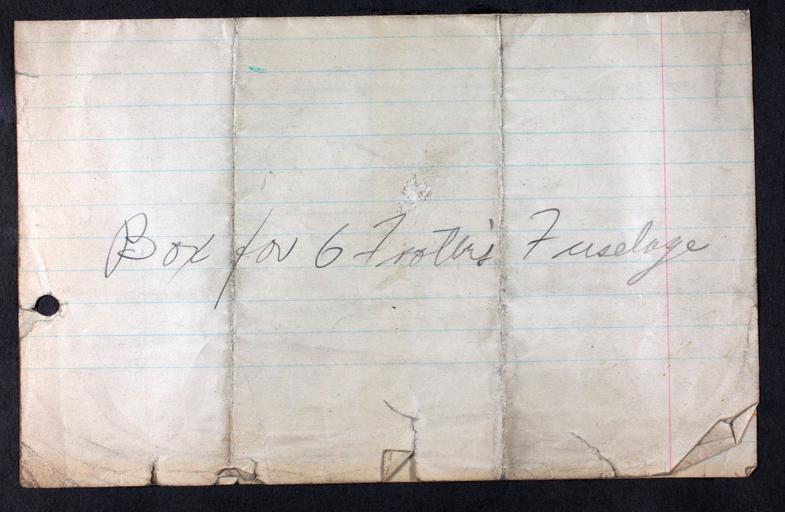 Box for 6 Footer's Fuselage